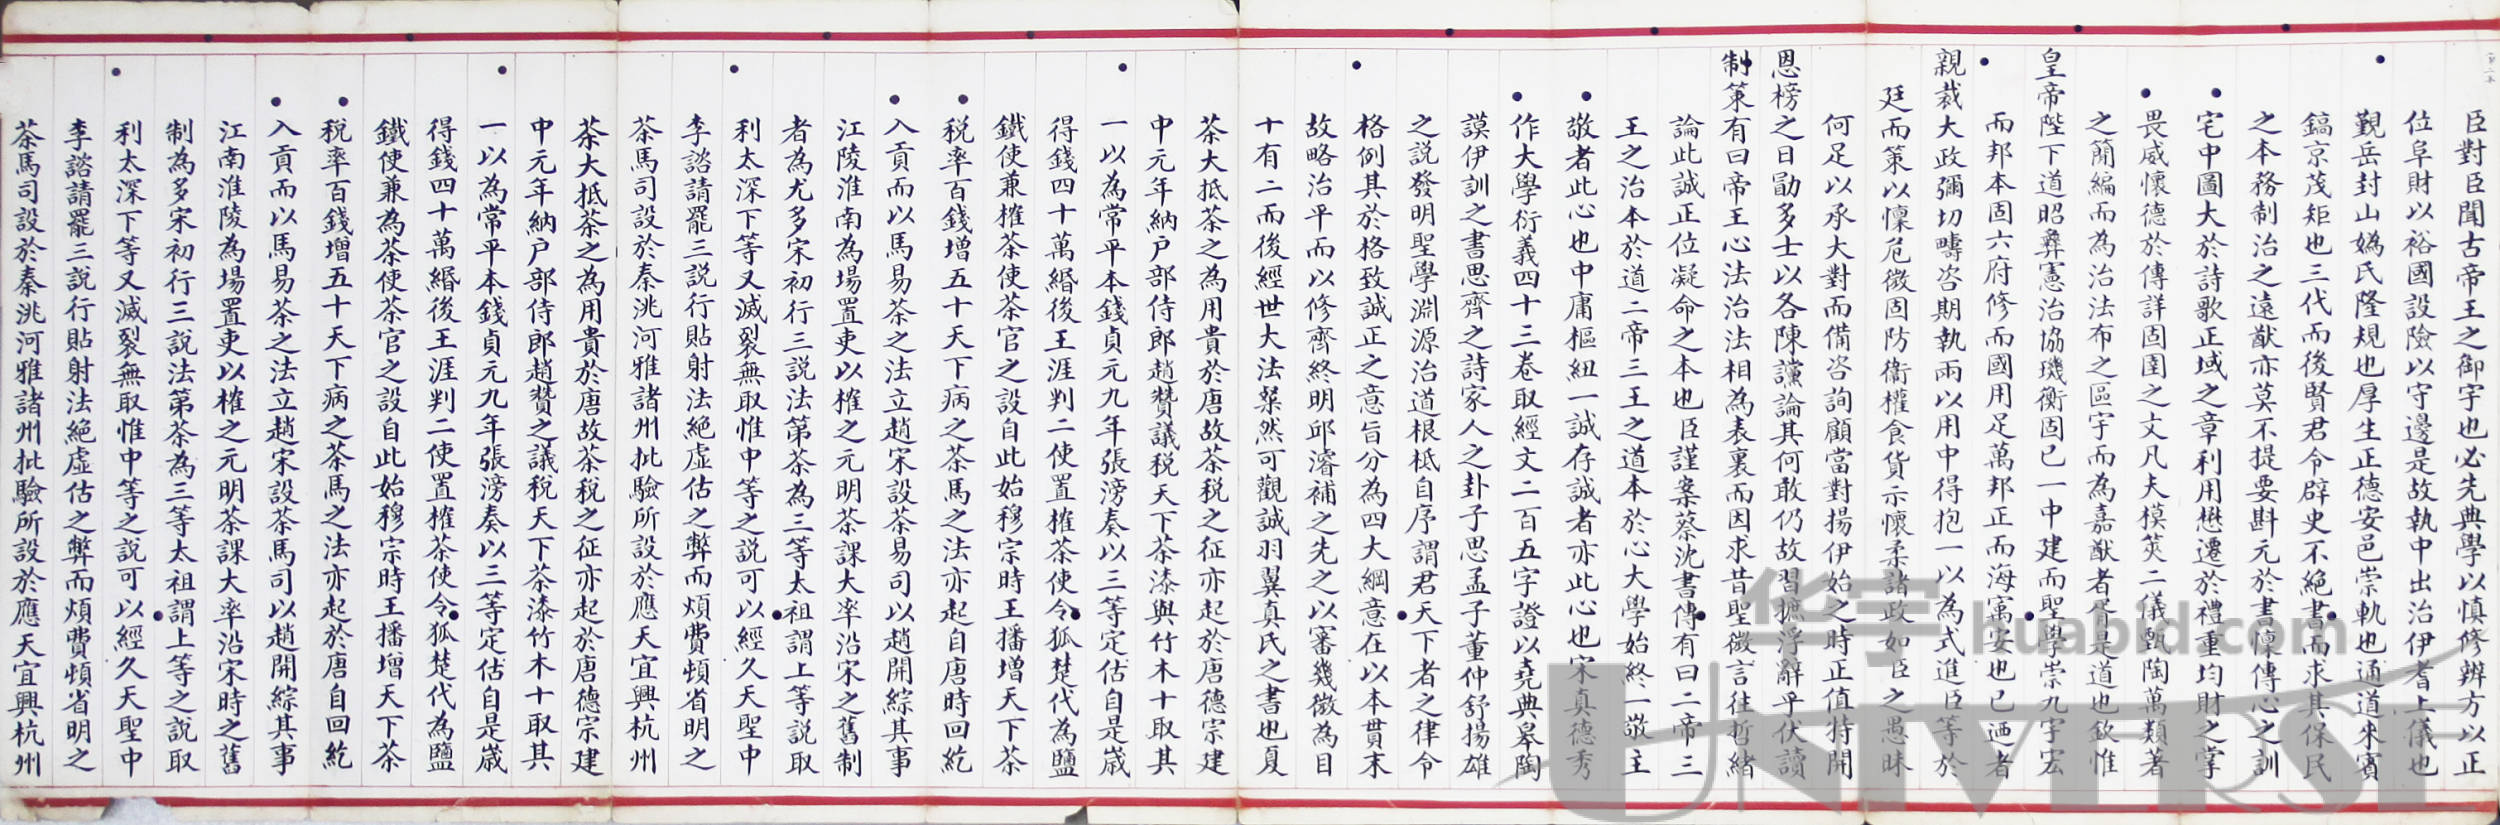 臣對臣聞古帝王之御宇也必先典學以慎修辨方以正
位阜財以裕國設險以守邊是故執中出治伊耆上儀也
覲岳封山媯氏隆規也厚生正德安邑崇軌也通道來賓
鎬京茂矩也三代而後賢君令辟史不絕書而求其保民
之本務制治之遠猷亦莫不提要斟元於書懍傳心之訓
宅中圖大於詩歌正域之章利用懋遷於禮重均財之掌
畏威懷德於傳詳固圉之文凡夫模筴二儀甄陶萬類著
之簡編而為治法布之區宇而為嘉猷者胥是道也欽惟
皇帝陛下道昭彝憲治協璣衡固已一中建而聖學崇九宇宏
而邦本固六府修而國用足萬邦正而海㝢安也已迺者
親裁大政彌切疇咨期執兩以用中得抱一以為式進臣等於
廷而策以懍危微固防衞權食貨示懷柔諸政如臣之愚昧
何足以承大對而備咨詢顧當對揚伊始之時正值特開
恩榜之日勖多士以各陳讜論其何敢仍故習摭浮辭乎伏讀
制策有曰帝王心法治法相為表裏而因求昔聖微言往哲緒
論此誠正位凝命之本也臣謹案蔡沈書傳有曰二帝三
王之治本於道二帝三王之道本於心大學始終一敬主
敬者此心也中庸樞紐一誠存誠者亦此心也宋真德秀
作大學衍義四十三卷取經文二百五字證以堯典皋陶
謨伊訓之書思齊之詩家人之卦子思孟子董仲舒揚雄
之說發明聖學淵源治道根柢自序謂君天下者之律令
格例其於格致誠正之意旨分為四大綱意在以本貫末
故略治平而以修齊終明邱濬補之先之以審幾微為目
十有二而後經世大法粲然可觀誠羽翼真氏之書也夏
茶大抵茶之為用貴於唐故茶稅之征亦起於唐德宗建
中元年納户部侍郎趙贊議稅天下茶漆與竹木十取其
一以為常平本錢貞元九年張滂奏以三等定估自是歲
得錢四十萬緡後王涯判二使置榷茶使令狐楚代為鹽
鐵使兼榷茶使茶官之設自此始穆宗時王播增天下茶
稅率百錢增五十天下病之茶馬之法亦起自唐時回紇
入貢而以馬易茶之法立趙宋設茶易司以趙開綜其事
江陵淮南為場置吏以榷之元明茶課大率沿宋之舊制
者為尤多宋初行三説法第茶為三等太祖謂上等説取
利太深下等又滅裂無取惟中等之説可以經久天聖中
李諮請罷三説行貼射法絕虛估之弊而煩費頓省明之
茶馬司設於秦洮河雅諸州批驗所設於應天宜興杭州
茶大抵茶之為用貴於唐故茶稅之征亦起於唐德宗建
中元年納户部侍郎趙贊之議稅天下茶漆竹木十取其
一以為常平本錢貞元九年張滂奏以三等定估自是歲
得錢四十萬緡後王涯判二使置榷茶使令狐楚代為鹽
鐵使兼為茶使茶官之設自此始穆宗時王播增天下茶
稅率百錢增五十天下病之茶馬之法亦起於唐自回紇
入貢而以馬易茶之法立趙宋設茶馬司以趙開綜其事
江南淮陵為場置吏以榷之元明茶課大率沿宋時之舊
制為多宋初行三說法第茶為三等太祖謂上等之說取
利太深下等又滅裂無取惟中等之說可以經久天聖中
李諮請罷三說行貼射法絕虛估之弊而煩費頓省明之
茶馬司設於秦洮河雅諸州批驗所設於應天宜興杭州
华宇 huabid.com
UNIVERSE